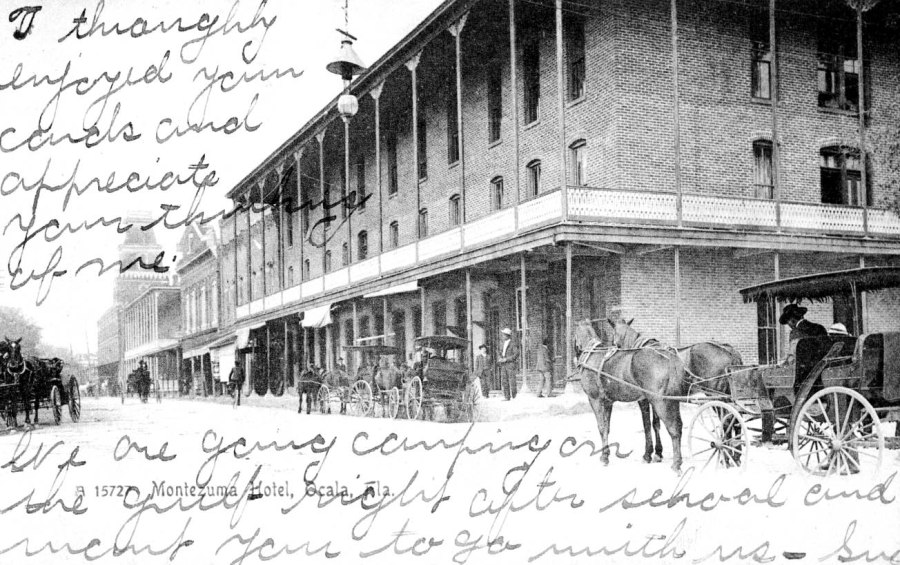 I throughly
enjoyed your
cards and
appreciate
your thinking
of me.
We are going camping on
A 15727 Montezuma Hotel, Ocala, Fla.
the gulf right after school and
want you to go with us –